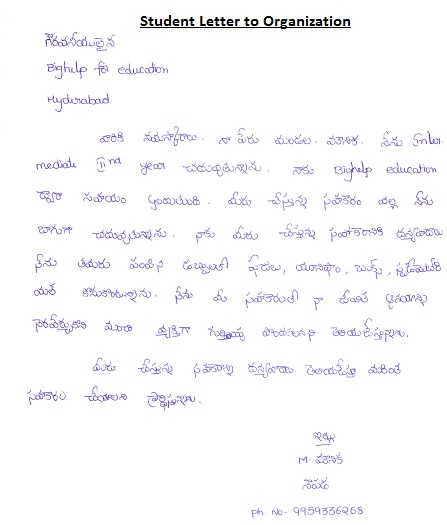 Student Letter to Organization
గౌరవనీయులైన
Bighelp for education
Hyderabad
వారికి నమస్కారాలు. నా పేరు మండల. మౌనిక. నేను Inter
mediate IInd year చదువుతున్నాను. నాకు Bighelp education
ద్వారా సహాయం అందుతుంది. మీరు చేస్తున్న సహకారం వల్ల నేను
బాగుగా చదువుతున్నాను. నాకు మీరు చేస్తున్న సహకారానికి ధన్యవాదాలు
నేను తమరు పంపిన డబ్బులతో ఫీజులు, యూనిఫాం, బుక్స్,
కొనుకుంటున్నాను. నేను మీ సహకారంతో నా
నెరవేర్చుకుని మంచి వ్యక్తిగా గుర్తింపు పొందగలనని తెలియచేస్తున్నాను.
మీరు చేస్తున్న సహకారానికి ధన్యవాదాలు తెలియచేస్తూ మరింత
సహకారం చేయాలని ప్రార్థిస్తున్నాను.
ఇట్లు
M. మౌనిక
Ph No- 9959336268